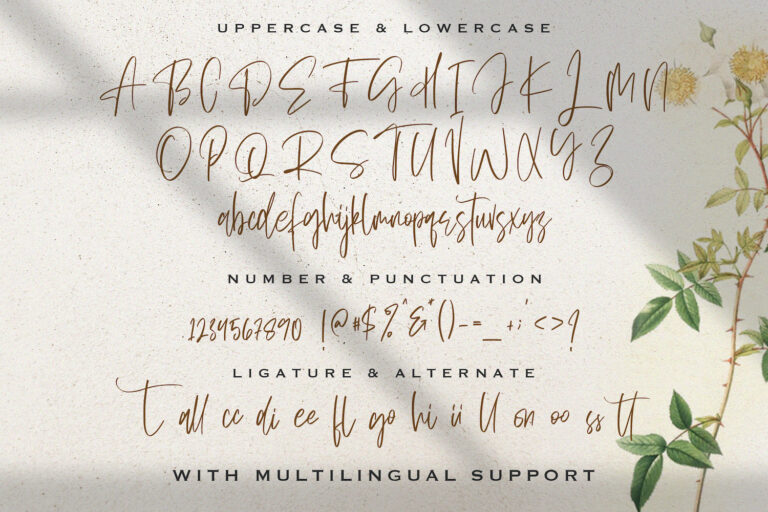 UPPERCASE & LOWERCASE
A B C D E F G H I J K L M N
O P Q R S T U V W X Y Z
abcdefghijklmnopqrstuvsxyz
NUMBER & PUNCTUATION
1234567890 !@#$%^&*()-=_+;'<>?
LIGATURE & ALTERNATE
T all cc di ee fl go hi ii ll on oo ss tt
WITH MULTILINGUAL SUPPORT